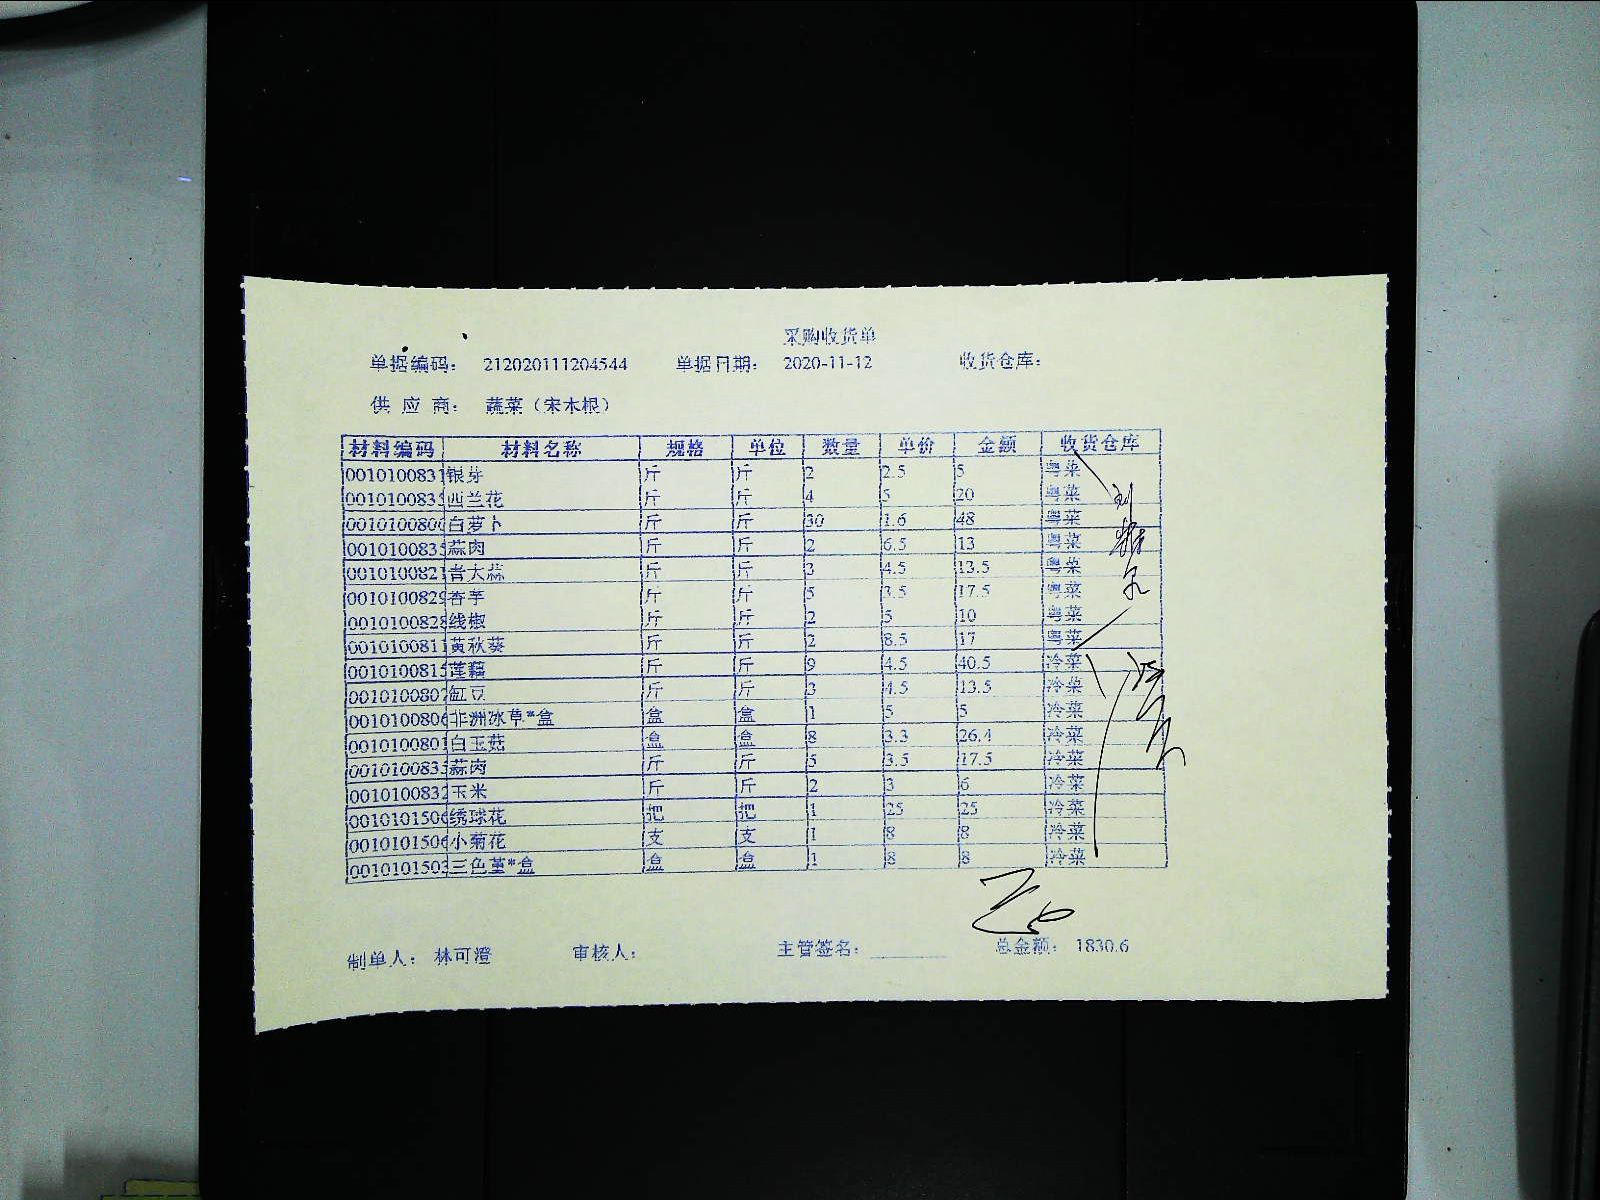 采购收货单
单据编码： 212020111204544 单据日期： 2020-11-12 收货仓库：
供 应 商： 蔬菜（宋木根）
材料编码 材料名称 规格 单位 数量 单价 金额 收货仓库
0010100831 银芽 斤 斤 2 2.5 5 粤菜
001010083 西兰花 斤 斤 4 5 20 粤菜
001010080 白萝卜 斤 斤 30 1.6 48 粤菜
001010083 蒜肉 斤 斤 2 6.5 13 粤菜
001010082 青大蒜 斤 斤 3 4.5 13.5 粤菜
001010082 香芋 斤 斤 5 3.5 17.5 粤菜
001010082 线椒 斤 斤 2 5 10 粤菜
001010081 黄秋葵 斤 斤 2 8.5 17 粤菜
001010081 莲藕 斤 斤 9 4.5 40.5 冷菜
001010080 缸豆 斤 斤 3 4.5 13.5 冷菜
001010080 非洲冰草*盒 盒 盒 1 5 5 冷菜
001010080 白玉菇 盒 盒 8 3.3 26.4 冷菜
001010083 蒜肉 斤 斤 5 3.5 17.5 冷菜
001010083 玉米 斤 斤 2 3 6 冷菜
001010150 绣球花 把 把 1 25 25 冷菜
001010150 小菊花 支 支 1 8 8 冷菜
001010150 三色堇*盒 盒 盒 1 8 8 冷菜
制单人： 林可澄 审核人： 主管签名： 总金额： 1830.6